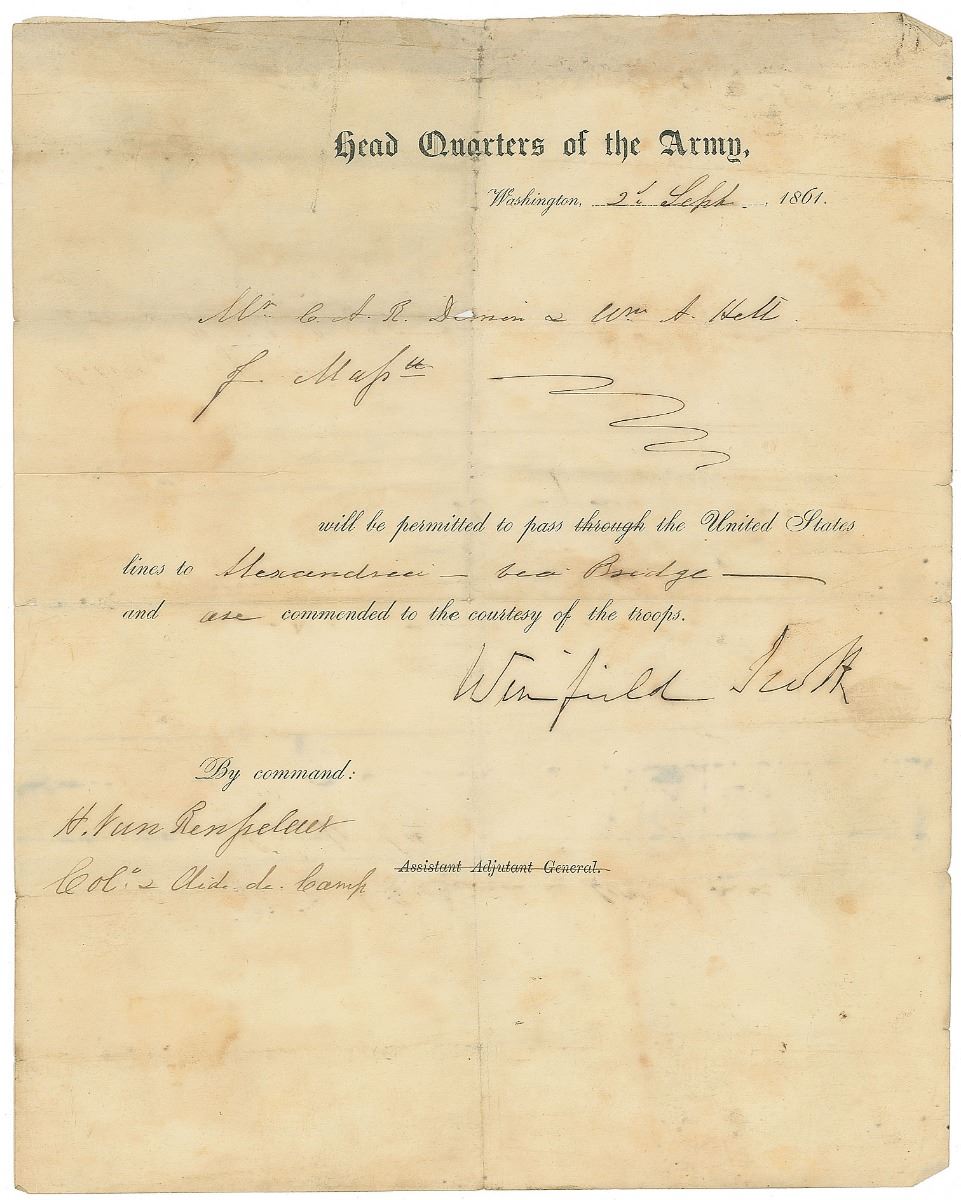 Head Quarters of the Army,
Washington, 2d Sept. 1861.
Mr. C. A. R. & Wm A. Hett
of Massts
will be permitted to pass through the United States
lines to Alexandria — via Bridge —
and are commended to the courtesy of the troops.
Winfield Scott
By command:
H. Van Rensselaer
Assistant Adjutant General.
Col. & Aide de Camp